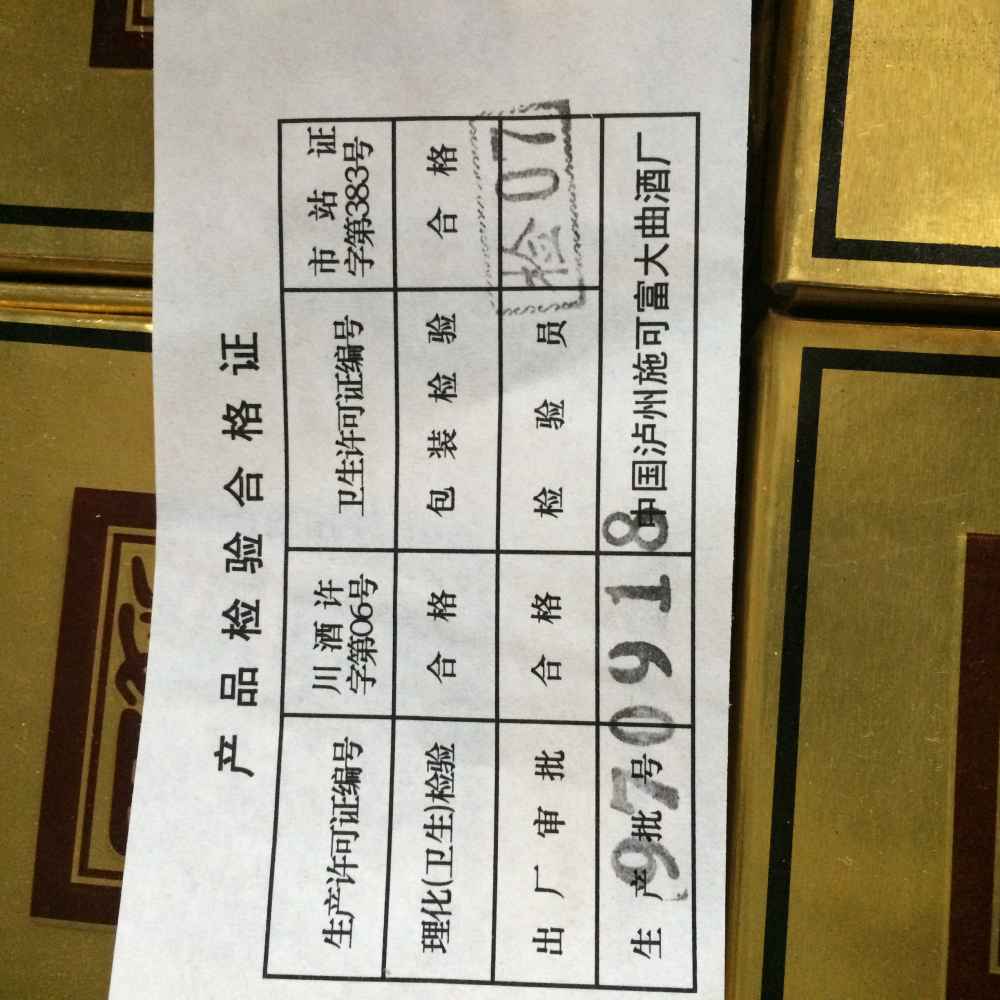 产品检验合格证
生产许可证编号 川酒许字第06号 卫生许可证编号 市站证字第383号
理化(卫生)检验 合格 包装检验 合格
出厂审批 合格 检验员 检07
生产批号 970918 中国泸州施可富大曲酒厂